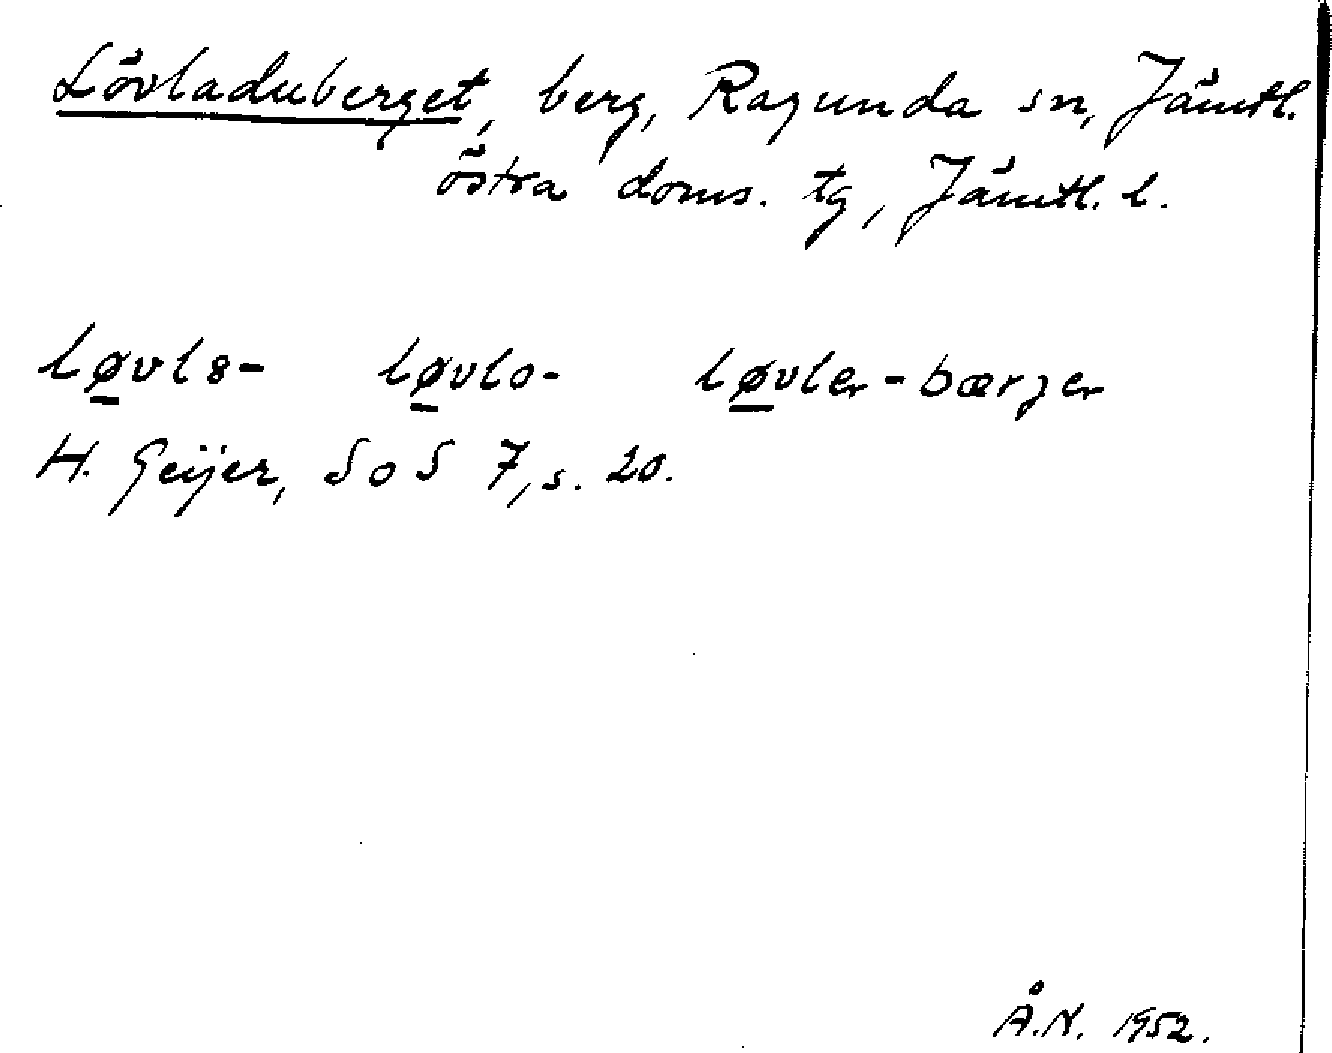 Lövladuberget, berg, Ragunda sn, Jämtl.
östra doms. tg, Jämtl. l.
løvl8- løvlo- løvler-bærjer
H. Geijer, SoS 7, s. 20.
Å.N. 1952.